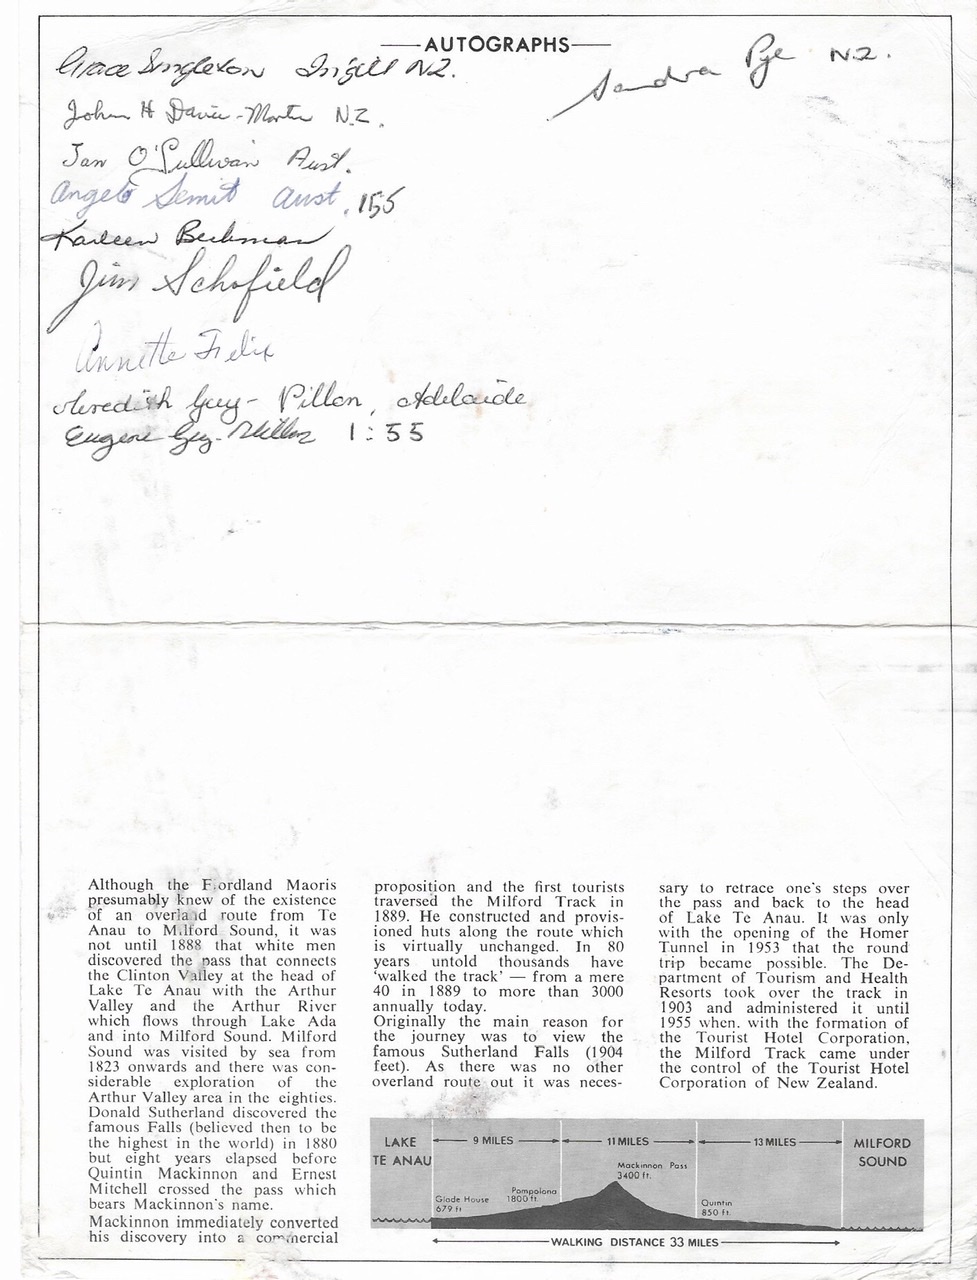 AUTOGRAPHS
Grace Singleton N.Z.
Sandra Pye N.Z.
John H N.Z.
O'Sullivan Aust.
Angelo Semit Aust. 155
Jim Schofield
Annette Felix
Meredith Guy- Adelaide
Eugene Guy- 1:55
Although the Fiordland Maoris
presumably knew of the existence
of an overland route from Te
Anau to Milford Sound, it was
not until 1888 that white men
discovered the pass that connects
the Clinton Valley at the head of
Lake Te Anau with the Arthur
Valley and the Arthur River
which flows through Lake Ada
and into Milford Sound. Milford
Sound was visited by sea from
1823 onwards and there was con-
siderable exploration of the
Arthur Valley area in the eighties.
Donald Sutherland discovered the
famous Falls (believed then to be
the highest in the world) in 1880
but eight years elapsed before
Quintin Mackinnon and Ernest
Mitchell crossed the pass which
bears Mackinnon's name.
Mackinnon immediately converted
his discovery into a commercial
proposition and the first tourists
traversed the Milford Track in
1889. He constructed and provis-
ioned huts along the route which
is virtually unchanged. In 80
years untold thousands have
'walked the track' — from a mere
40 in 1889 to more than 3000
annually today.
Originally the main reason for
the journey was to view the
famous Sutherland Falls (1904
feet). As there was no other
overland route out it was neces-
sary to retrace one's steps over
the pass and back to the head
of Lake Te Anau. It was only
with the opening of the Homer
Tunnel in 1953 that the round
trip became possible. The De-
partment of Tourism and Health
Resorts took over the track in
1903 and administered it until
1955 when. with the formation of
the Tourist Hotel Corporation,
the Milford Track came under
the control of the Tourist Hotel
Corporation of New Zealand.
LAKE
TE ANAU
9 MILES
11 MILES
13 MILES
MILFORD
SOUND
Mackinnon Pass
3400 ft.
Pompolona
1800 ft.
Glade House
679 ft
Quintin
850 ft.
WALKING DISTANCE 33 MILES